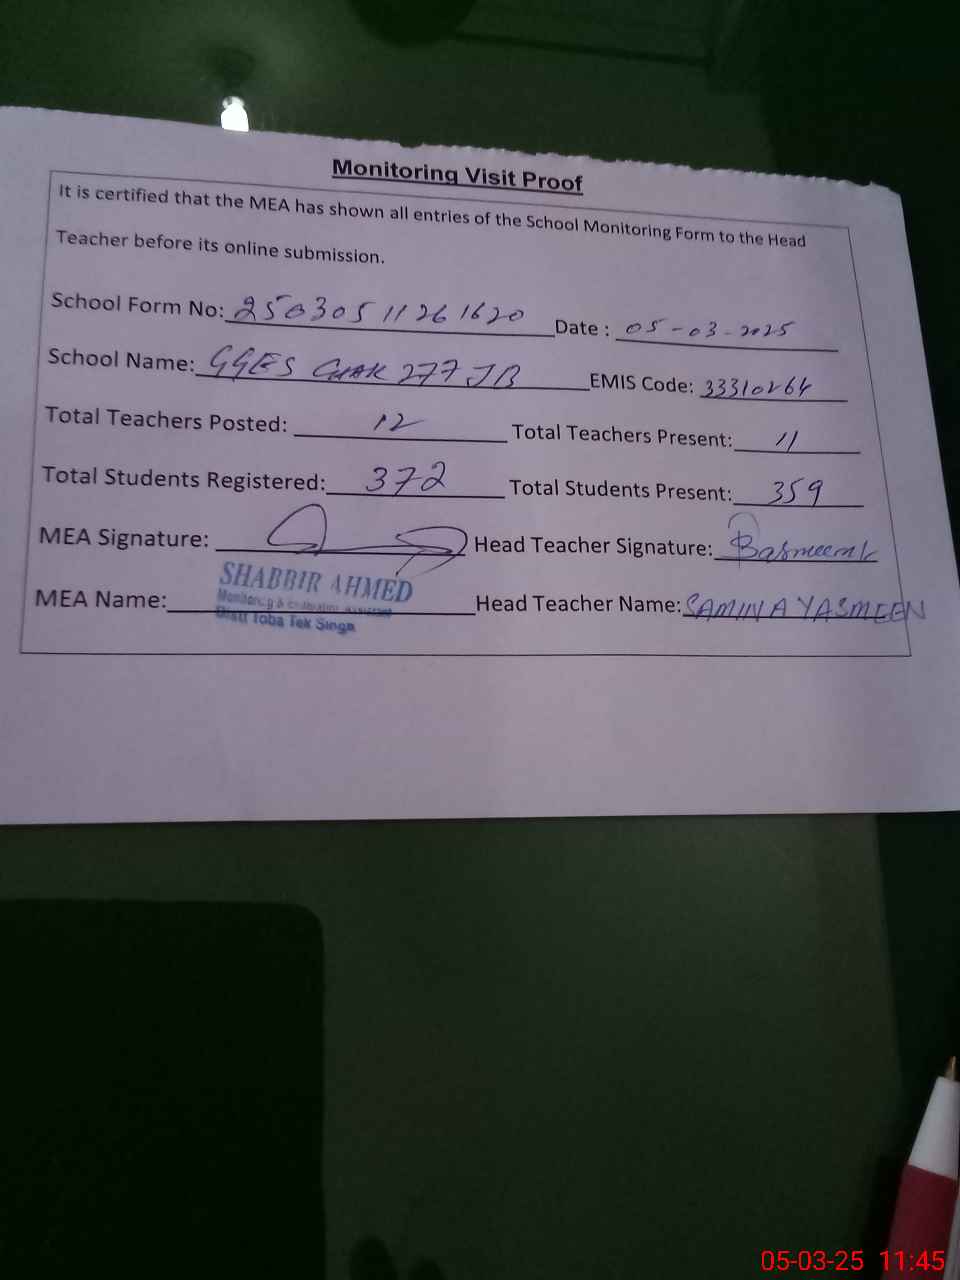 Monitoring Visit Proof
It is certified that the MEA has shown all entries of the School Monitoring Form to the Head
Teacher before its online submission.
School Form No: 25030511261620 Date : 05-03-2025
School Name: GGES CHAK 277 JB EMIS Code: 33310264
Total Teachers Posted: 12 Total Teachers Present: 11
Total Students Registered: 372 Total Students Present: 359
MEA Signature: Head Teacher Signature:
MEA Name: SHABBIR AHMED Head Teacher Name: SAMINA YASMEEN
Distt Toba Tek Singh
05-03-25 11:45